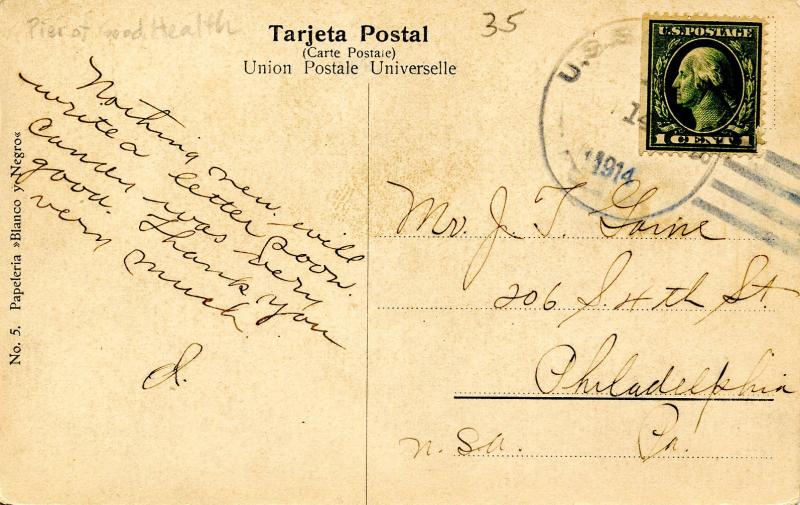 Pier of Good Health
35
Tarjeta Postal
(Carte Postale)
Union Postale Universelle
U.S.S.
14
1914
U.S. POSTAGE
1 CENT 1
Nothing new. will
write a letter soon.
was very
good. Thank you
very much.
d.
Mr. J. T.
206 S. 4th St.
Philadelphia
Pa.
No. 5. Papeleria »Blanco y Negro«